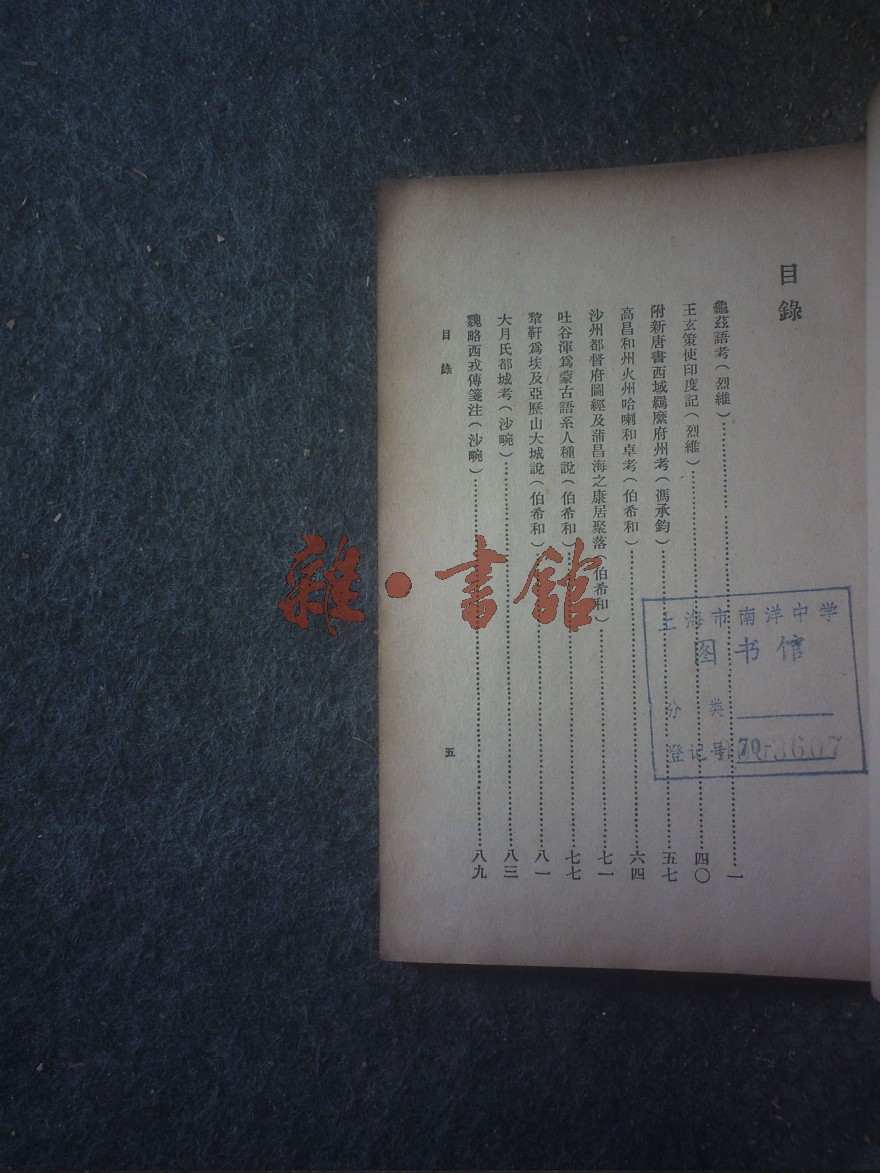 目錄
龜茲語考(烈維)……一
王玄策使印度記(烈維)……四〇
附新唐書西域羈縻府州考(馮承鈞)……五七
高昌和州火州哈喇和卓考(伯希和)……六四
沙州都督府圖經及蒲昌海之康居聚落(伯希和)……七一
吐谷渾爲蒙古語系人種說(伯希和)……七七
犂靬爲埃及亞歷山大城說(伯希和)……八一
大月氏都城考(沙畹)……八三
魏略西戎傳箋注(沙畹)……八九
目錄
五
上海市南洋中学
图书馆
分类
登记号 3607
雜·書館